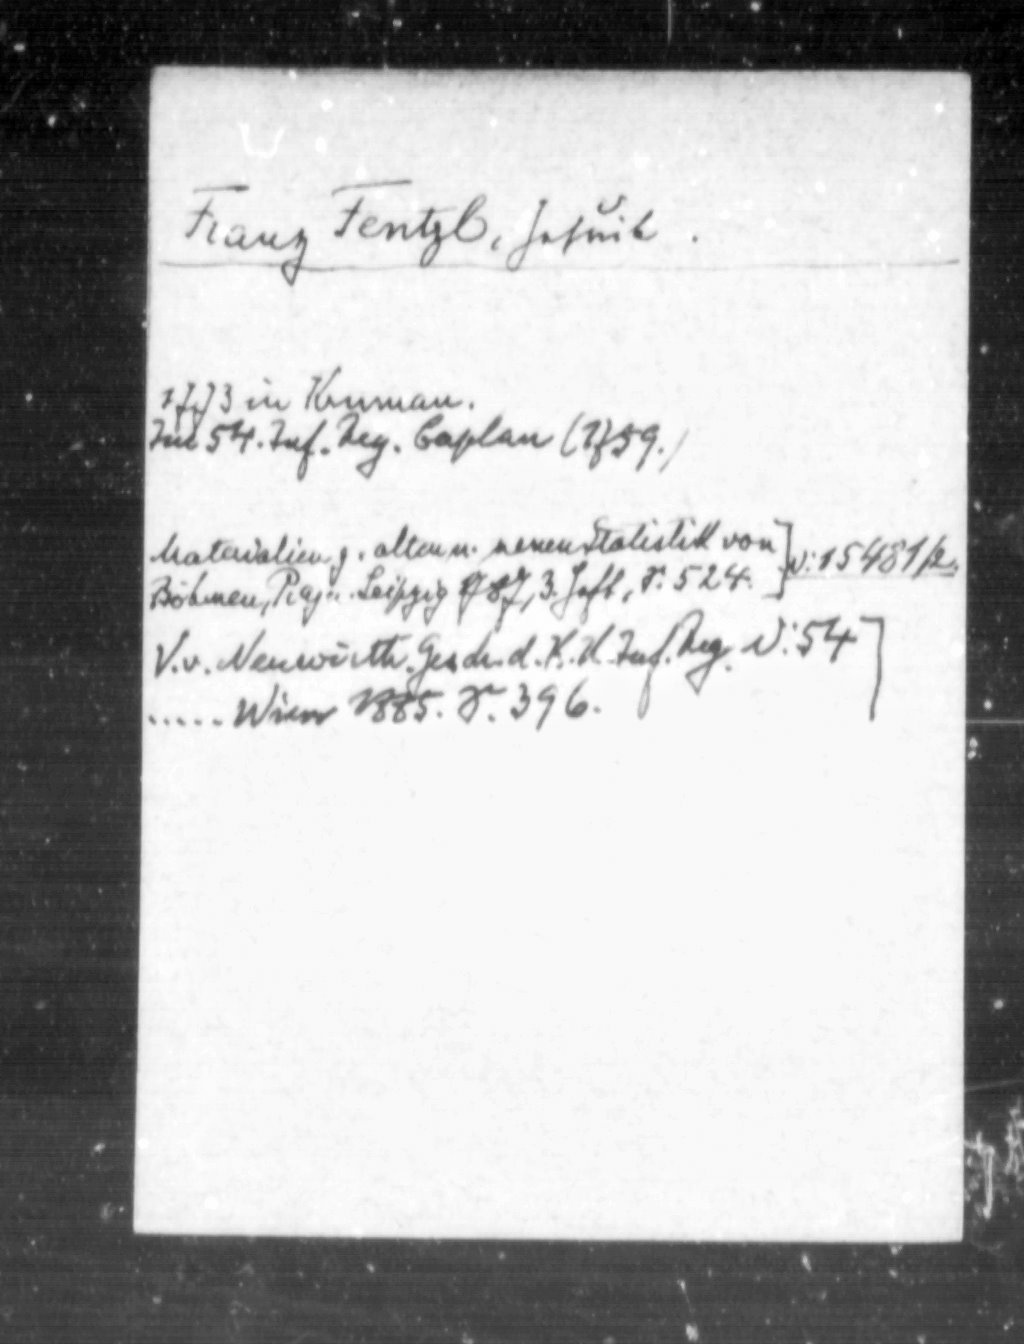 Franz Fentzl, Jesuit.
1773 in Krumau.
Im 54. Inf. Reg. Caplan (1759.)
Materialien z. alten u. neuen Statistik von
Böhmen, Prag u. Leipzig 1787, 3. Heft, S. 524. N: 15481/2.
V. v. Neuwirth. Gesch. d. K. K. Inf. Reg. N: 54
..... Wien 1885. S. 396.